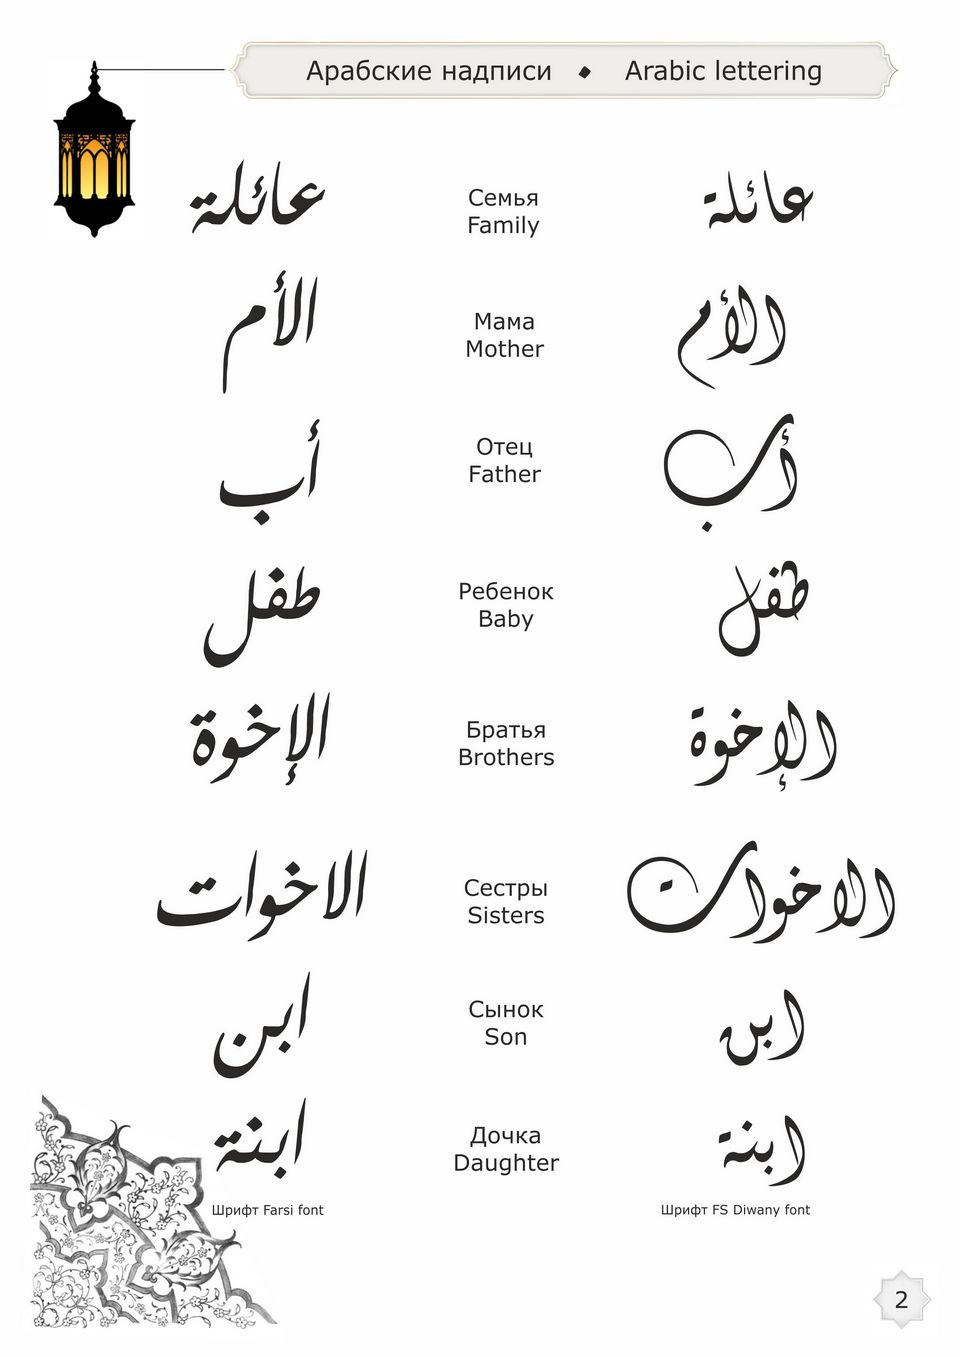 Арабские надписи ◆ Arabic lettering
عائلة
Семья
Family
عائلة
الأم
Мама
Mother
الأم
أب
Отец
Father
أب
طفل
Ребенок
Baby
طفل
الإخوة
Братья
Brothers
الإخوة
الاخوات
Сестры
Sisters
الاخوات
ابن
Сынок
Son
ابن
ابنة
Дочка
Daughter
ابنة
Шрифт Farsi font
Шрифт FS Diwany font
2